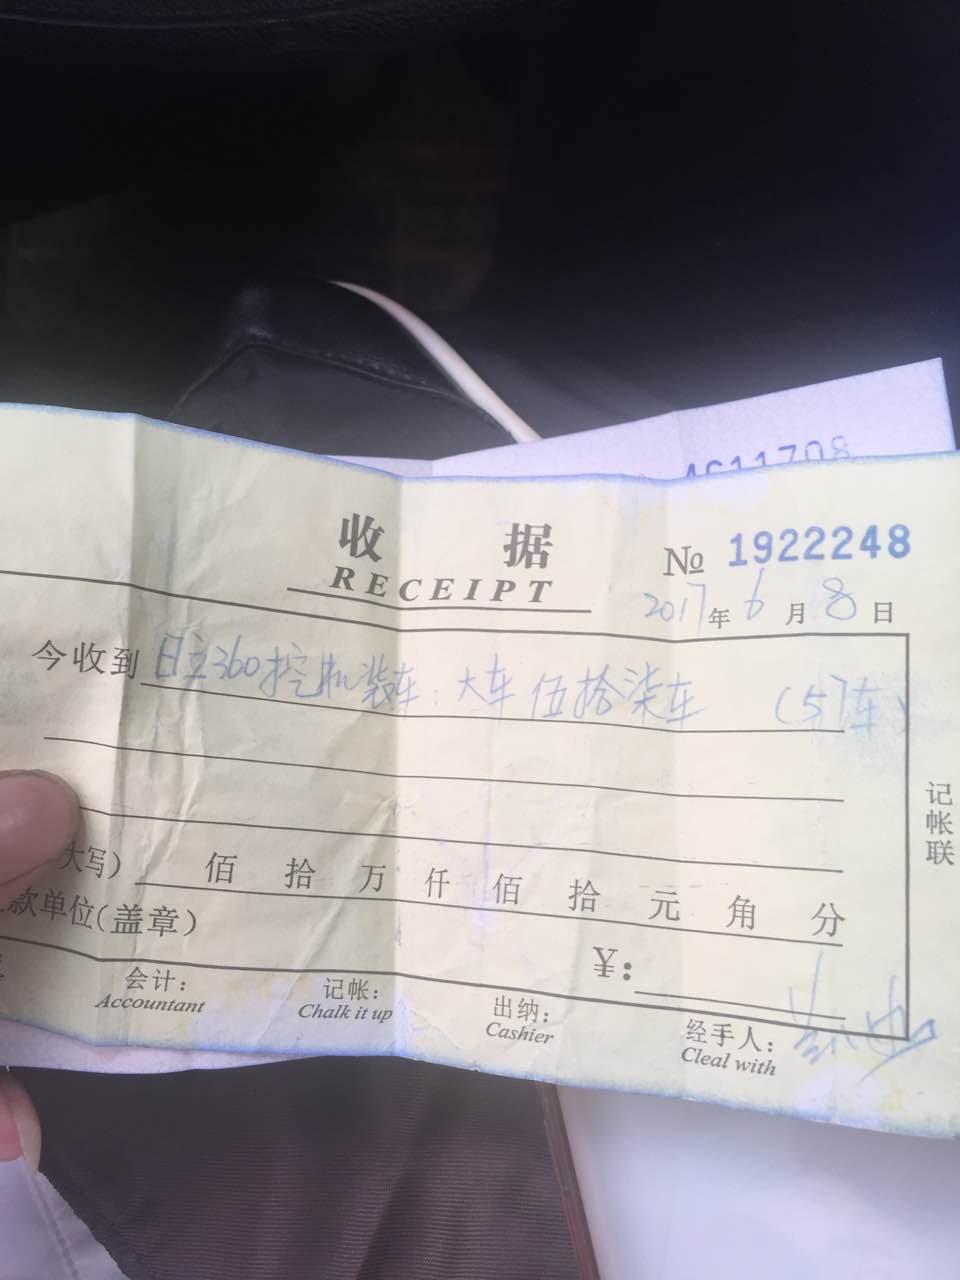 4611708
收 据
RECEIPT
№ 1922248
2017年6月8日
今收到日立360挖机装车:大车伍拾柒车 (57车)
大写) 佰 拾 万 仟 佰 拾 元 角 分
款单位(盖章)
¥:
会计: 记帐: 出纳: 经手人:
Accountant Chalk it up Cashier Cleal with
记帐联